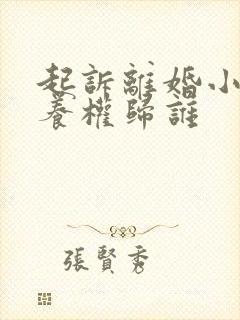 起訴離婚小
養權歸誰
張賢秀